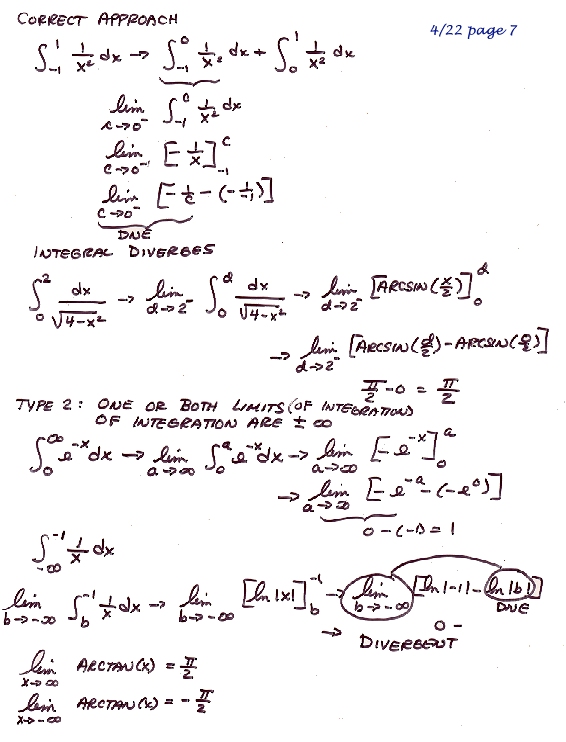 CORRECT APPROACH
4/22 page 7
∫₋₁¹ 1/x² dx → ∫₋₁⁰ 1/x² dx + ∫₀¹ 1/x² dx
lim c→0⁻ ∫₋₁ᶜ 1/x² dx
lim c→0⁻ [-1/x]₋₁ᶜ
lim c→0⁻ [-1/c - (-1/-1)]
DNE
INTEGRAL DIVERGES
∫₀² dx/√(4-x²) → lim d→2⁻ ∫₀ᵈ dx/√(4-x²) → lim d→2⁻ [ARCSIN(x/2)]₀ᵈ
→ lim d→2⁻ [ARCSIN(d/2) - ARCSIN(0/2)]
π/2 - 0 = π/2
TYPE 2: ONE OR BOTH LIMITS (OF INTEGRATION)
OF INTEGRATION ARE ± ∞
∫₀^∞ e^-x dx → lim a→∞ ∫₀ᵃ e^-x dx → lim a→∞ [-e^-x]₀ᵃ
→ lim a→∞ [-e^-a - (-e⁰)]
0 - (-1) = 1
∫_-∞^-1 1/x dx
lim b→-∞ ∫_b^-1 1/x dx → lim b→-∞ [ln|x|]_b^-1 → lim b→-∞ [ln|-1| - ln|b|]
DNE
0 -
→ DIVERGENT
lim x→∞ ARCTAN(x) = π/2
lim x→-∞ ARCTAN(x) = -π/2